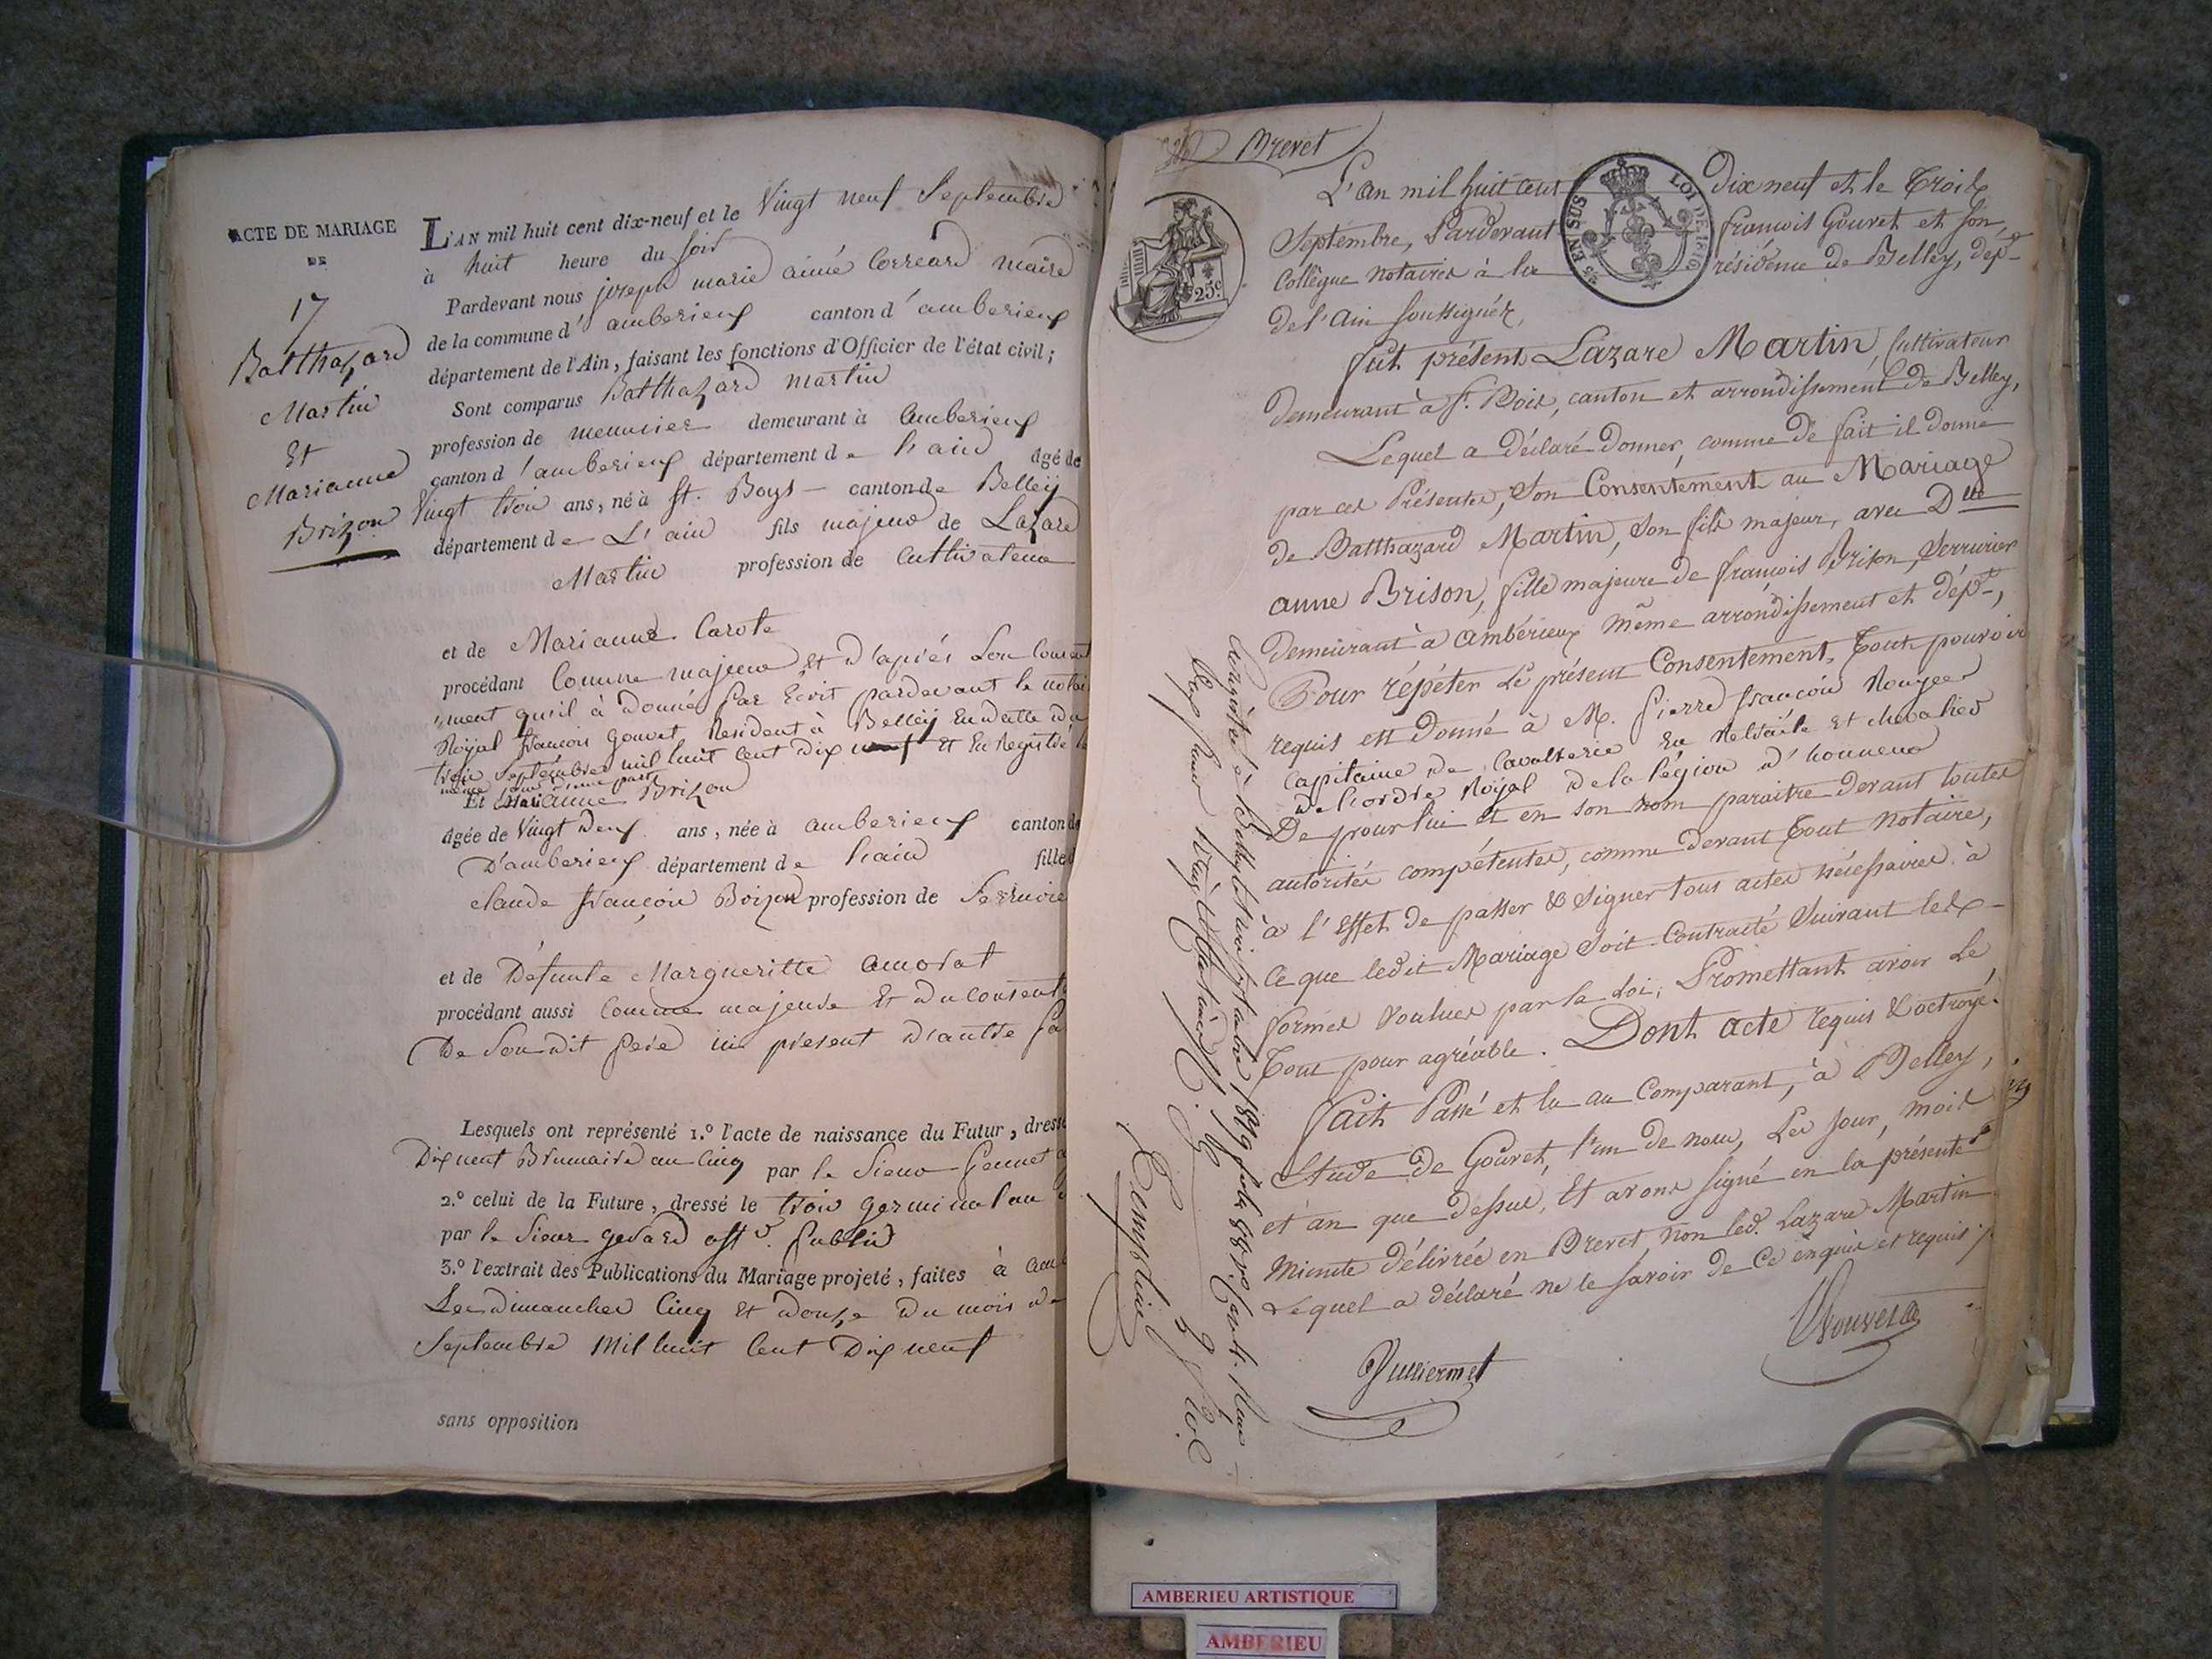 ACTE DE MARIAGE
DE
17
Balthazard
Martin
Et
Marianne
Brizon
L'AN mil huit cent dix-neuf et le Vingt neuf Septembre
à huit heure du soir
Pardevant nous joseph marie aimé Correard maire
de la commune d'amberieux canton d'amberieux
département de l'Ain, faisant les fonctions d'Officier de l'état civil;
Sont comparus Balthazard martin
profession de meunier demeurant à amberieux
canton d'amberieux département de l'ain âgé de
Vingt trois ans, né à St. Boys canton de Belleÿ
département de L'ain fils majeur de Lazare
Martin profession de Cultivateur
et de Marianne Carote
procédant Comme majeur Et d'après Son Consent
ment qu'il à donné par Ecrit pardevant le notai
Roÿal francois Gouvet Resident à Belleÿ En datte du
trois Septembre mil huit Cent Dix neuf Et En Registré le
même d'une part
Et Marianne Brizon
âgée de Vingt deux ans, née à amberieux canton de
D'amberieux département de l'ain fille d
claude françois Brizon profession de Serrurie
et de Defunte Margueritte amorat
procédant aussi Comme majeure Et du Consente
De Son dit pere ici présent d'autre pa
Lesquels ont représenté 1.º l'acte de naissance du Futur, dressé
Dix neuf Brumaire an Cinq par le Sieur
2.º celui de la Future, dressé le trois germinal an
par le Sieur offr. public
3.º l'extrait des Publications du Mariage projeté, faites à am
Les dimanches Cinq Et douze du mois de
Septembre Mil huit Cent Dix neuf
sans opposition
Brevet
25c.
25 EN SUS LOI DE 1816
L'an mil huit cent dix neuf et le Trois
Septembre, Pardevant françois Gouvet et son
Collègue notaires à la résidence de Belley, dépt
de l'Ain soussignés,
fut présent Lazare Martin, Cultivateur
demeurant à St. Bois, canton et arrondissement de Belley,
Lequel a déclaré donner, comme de fait il donne
par ces Présentes, Son Consentement au Mariage
de Balthazard Martin, Son fils majeur, avec Dlle
anne Brison, fille majeure de françois Brison, Serrurier
demeurant à Ambérieux même arrondissement et dépt,
Pour répéter Le présent Consentement, Tout pouvoir
requis est Donné à M. pierre francois Rougee
Capitaine de Cavallerie En Retraite Et chevalier
de l'ordre Roÿal de la légion d'honneur
De pour lui et en son nom paraitre devant toutes
autorités compétentes, comme devant Tout Notaire,
à l'Effet de passer & signer tous actes nécessaires à
Ce que ledit Mariage soit Contracté Suivant les
formes voulues par la Loi, Promettant avoir Le
Tout pour agréable. Dont acte requis & octroyé.
fait Passé et lu au Comparant, à Belley,
Etude de Gouvet, l'un de nous, Les jour, mois
et an que dessus, Et avons signé en la présente
Minute délivrée en Brevet, non led. Lazare Martin
Lequel a déclaré ne le savoir de ce enquis et requis
Jullierme
Gouvet
Enregistré à Belley le trois Septembre 1819
AMBERIEU ARTISTIQUE
AMBERIEU